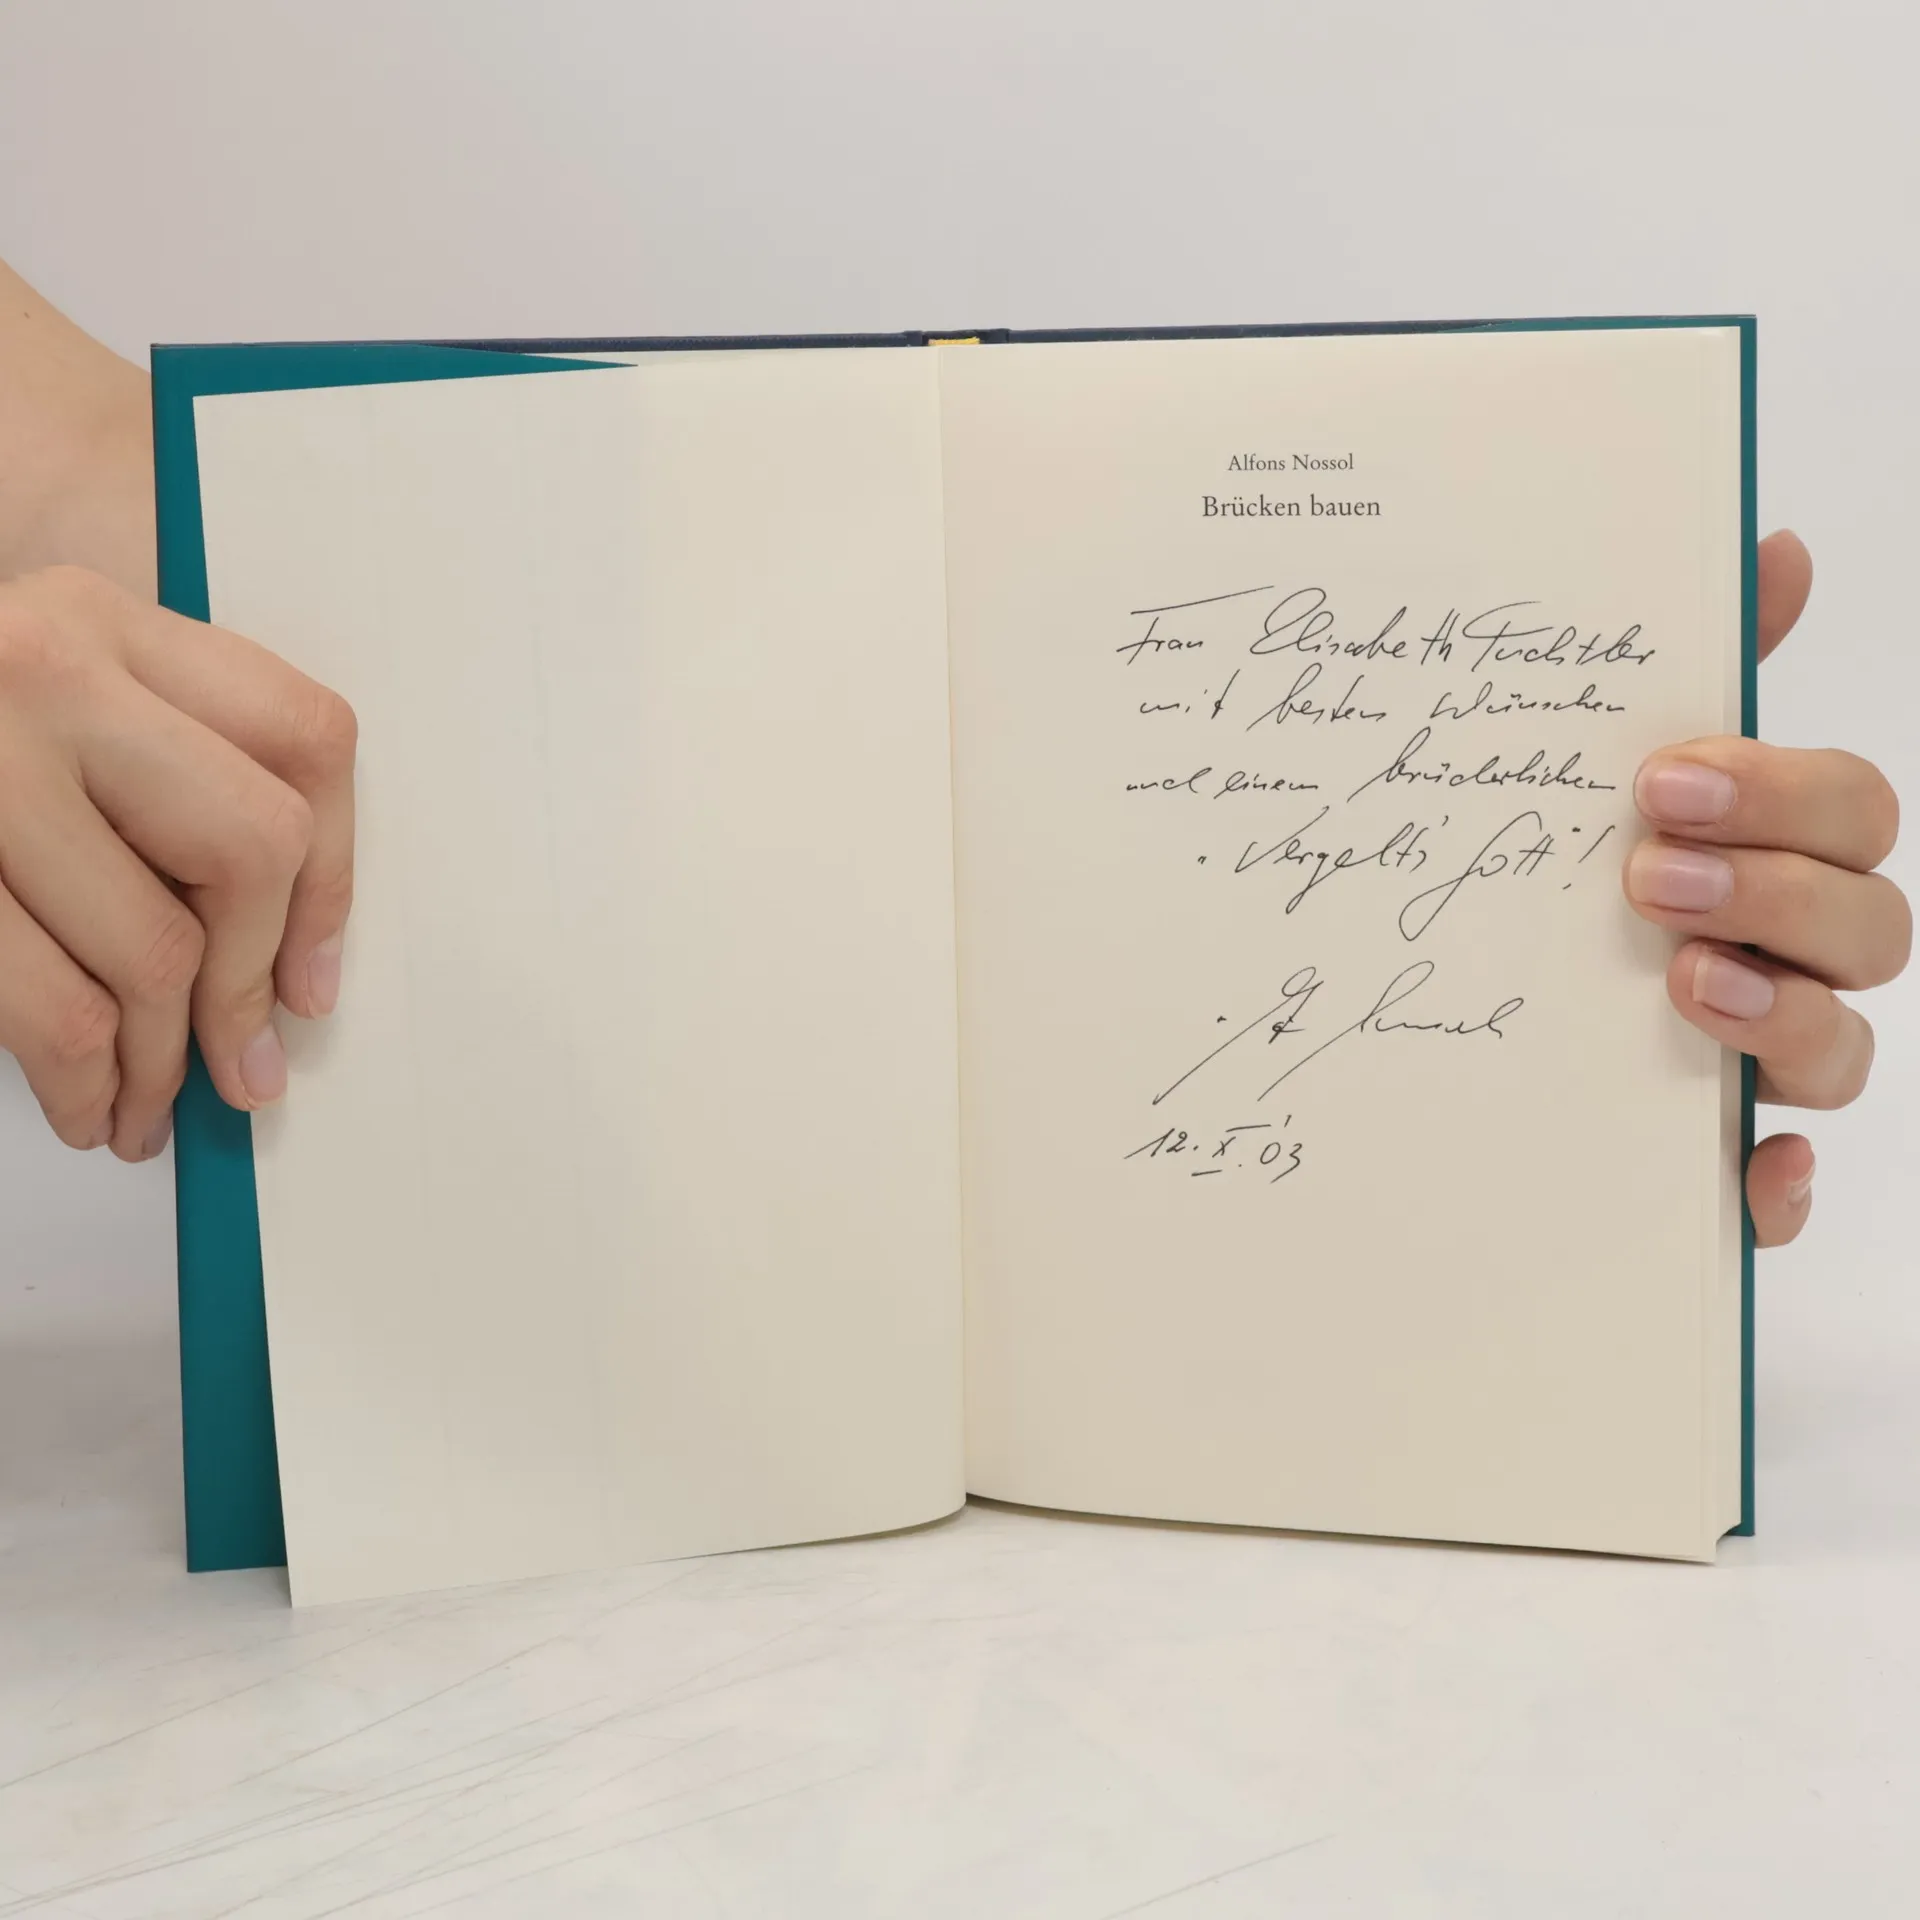 Alfons Nossol
Brücken bauen
Frau Elisabeth
mit besten Wünschen
und einem brüderlichen
"Vergelt's Gott"!
12.X.'03